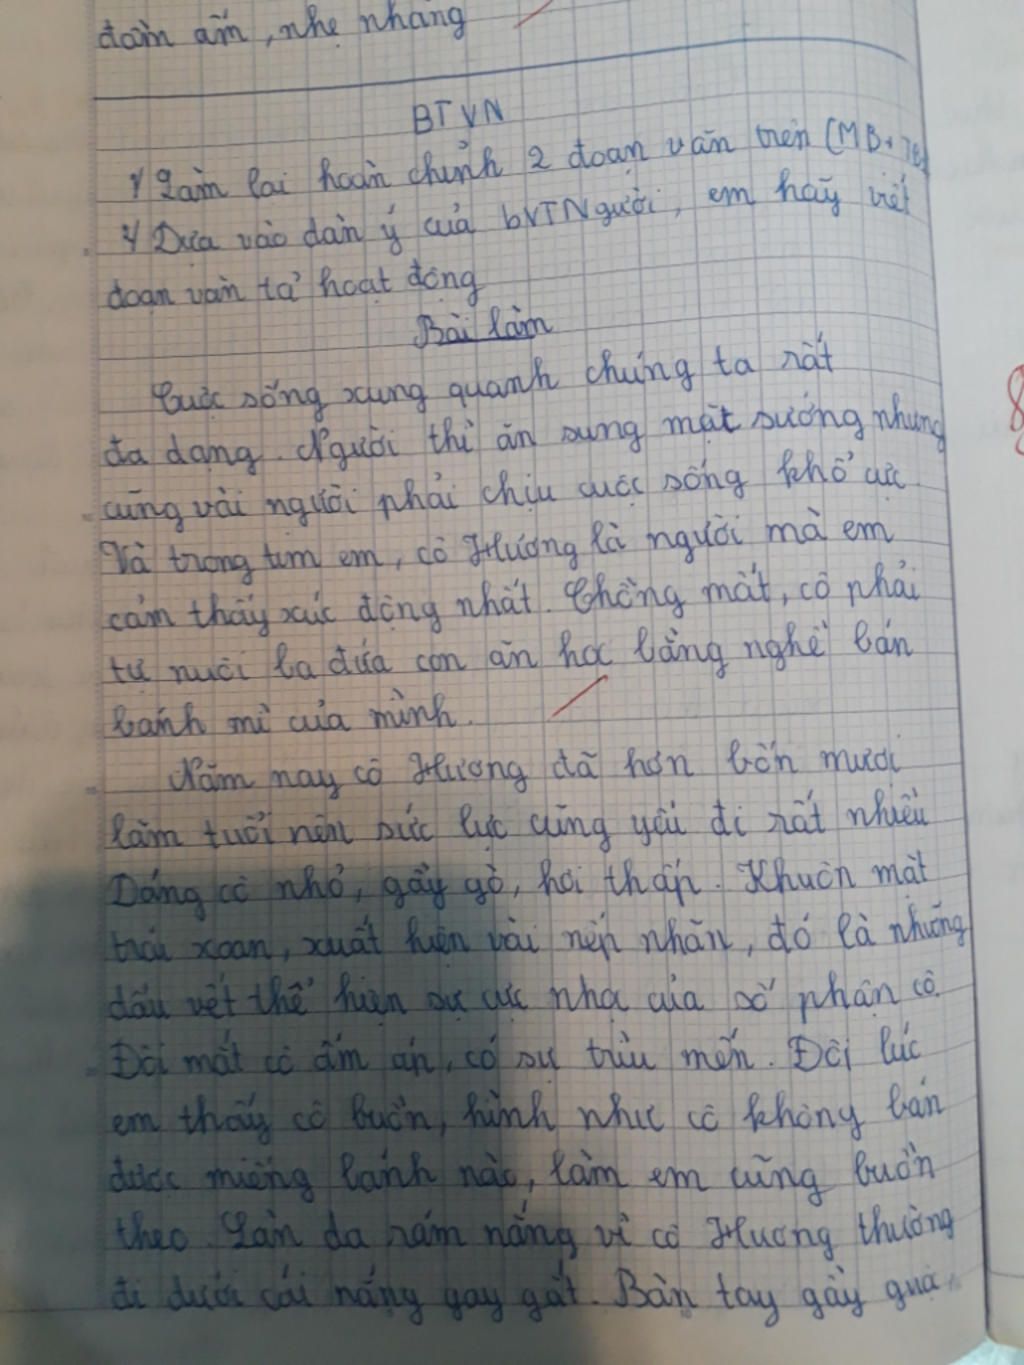 đoàn ấm, nhẹ nhàng
BTVN
1/ Làm lại hoàn chỉnh 2 đoạn văn trên (MB + TB)
2/ Dựa vào dàn ý của bVTNgười, em hãy viết
đoạn văn tả hoạt động
Bài làm
Cuộc sống xung quanh chúng ta rất
đa dạng. Người thì ăn sung mặt sướng nhưng
cũng vài người phải chịu cuộc sống khổ cực.
Và trong tim em, cô Hương là người mà em
cảm thấy xúc động nhất. Chồng mất, cô phải
tự nuôi ba đứa con ăn học bằng nghề bán
bánh mì của mình.
Năm nay cô Hương đã hơn bốn mươi
lăm tuổi nên sức lực cũng yếu đi rất nhiều
Dáng cô nhỏ, gầy gò, hơi thấp. Khuôn mặt
trái xoan, xuất hiện vài nếp nhăn, đó là những
dấu vết thể hiện sự cực nhọc của số phận cô.
Đôi mắt cô ấm áp, có sự trìu mến. Đôi lúc
em thấy cô buồn, hình như cô không bán
được miếng bánh nào, làm em cũng buồn
theo. Làn da rám nắng vì cô Hương thường
đi dưới cái nắng gay gắt. Bàn tay gầy guộc